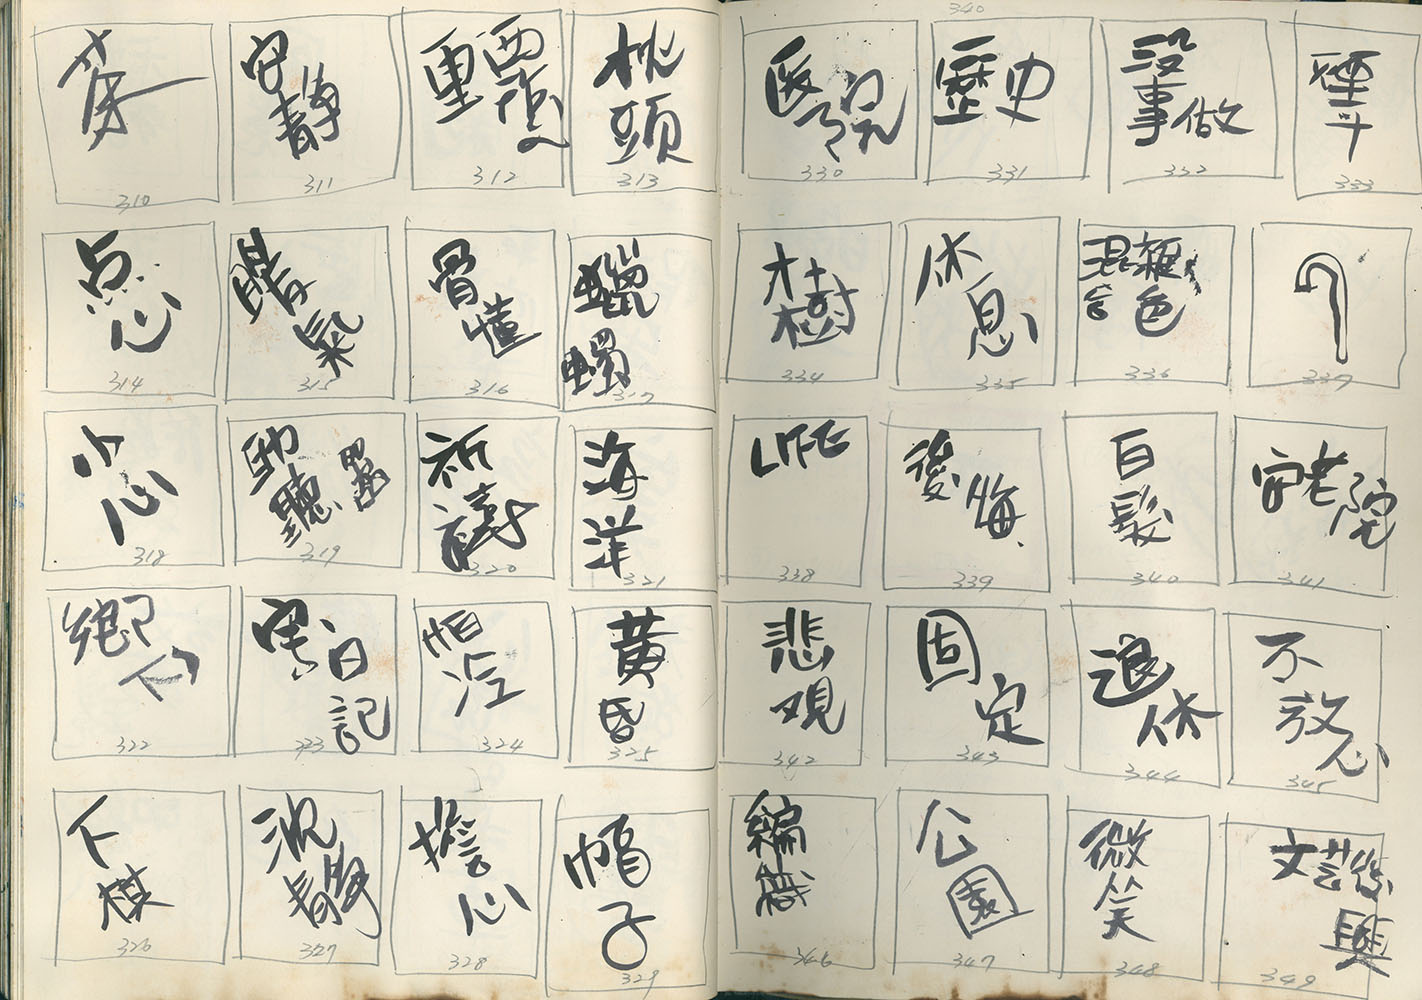 340
安静
311
重要
312
枕頭
313
310
点心
314
暗氣
315
骨董
316
蠟蠋
317
小心
318
助聽器
319
祈禱
320
海洋
321
鄉下
322
寫日記
323
324
黃昏
325
下棋
326
沈靜
327
擔心
328
帽子
329
醫院
330
歷史
331
没事做
332
333
樹
334
休息
335
混雜
色
336
337
LIFE
338
後悔
339
白髮
340
老院
341
悲观
342
固定
343
退休
344
不放心
345
編織
346
公園
347
微笑
348
文藝復興
349